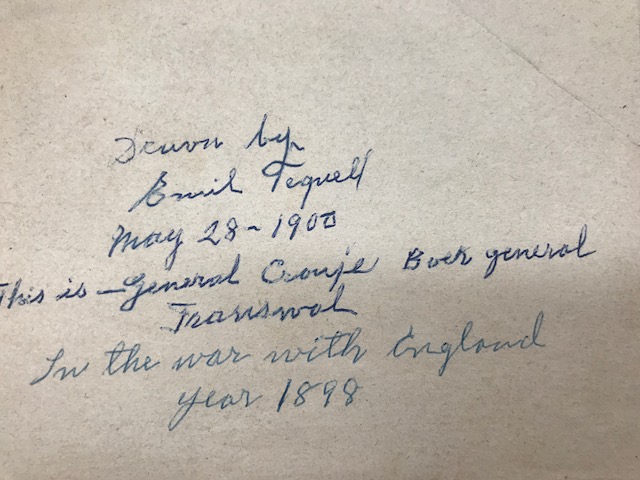 Drawn by
Emil Tequell
May 28-1900
This is - General Cronje Boer general
Transwal
In the war with England
year 1898